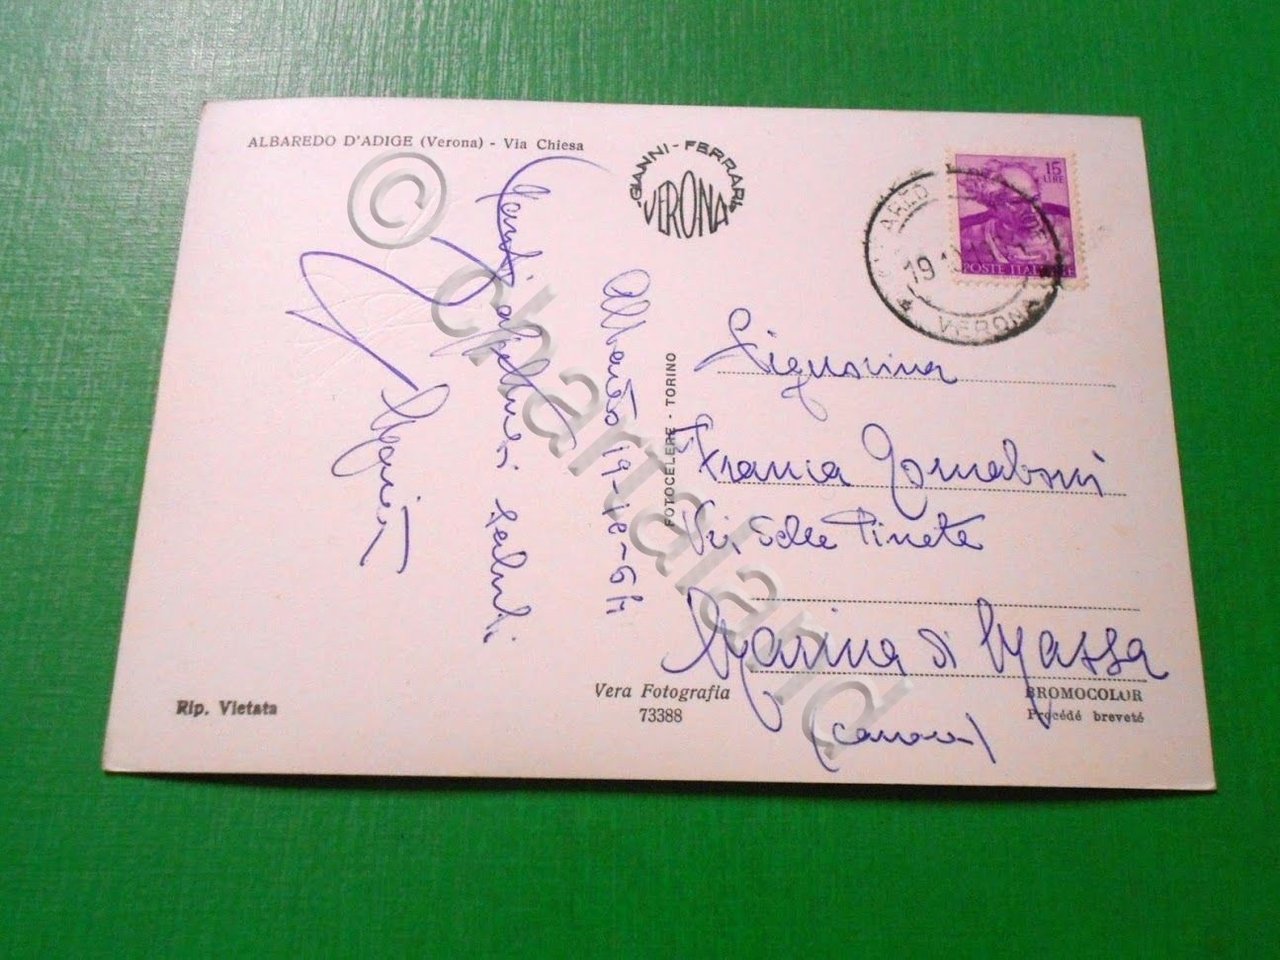 ALBAREDO D'ADIGE (Verona) - Via Chiesa
GIANNI - FERRARI
VERONA
15
LIRE
POSTE ITALIANE
19
VERONA
Tanti affettuosi saluti
Albaredo 19-10-64
FOTOCELERE - TORINO
Signorina
Franca
Via delle Pinete
Marina di Massa
(Carrara)
Rip. Vietata
Vera Fotografia
73388
BROMOCOLOR
Procédé breveté
© charnaland